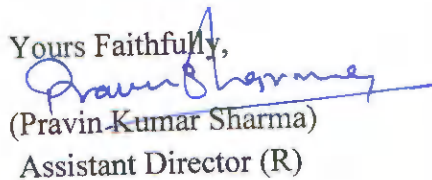 Yours Faithfully,
Pravin Sharma
(Pravin Kumar Sharma)
Assistant Director (R)